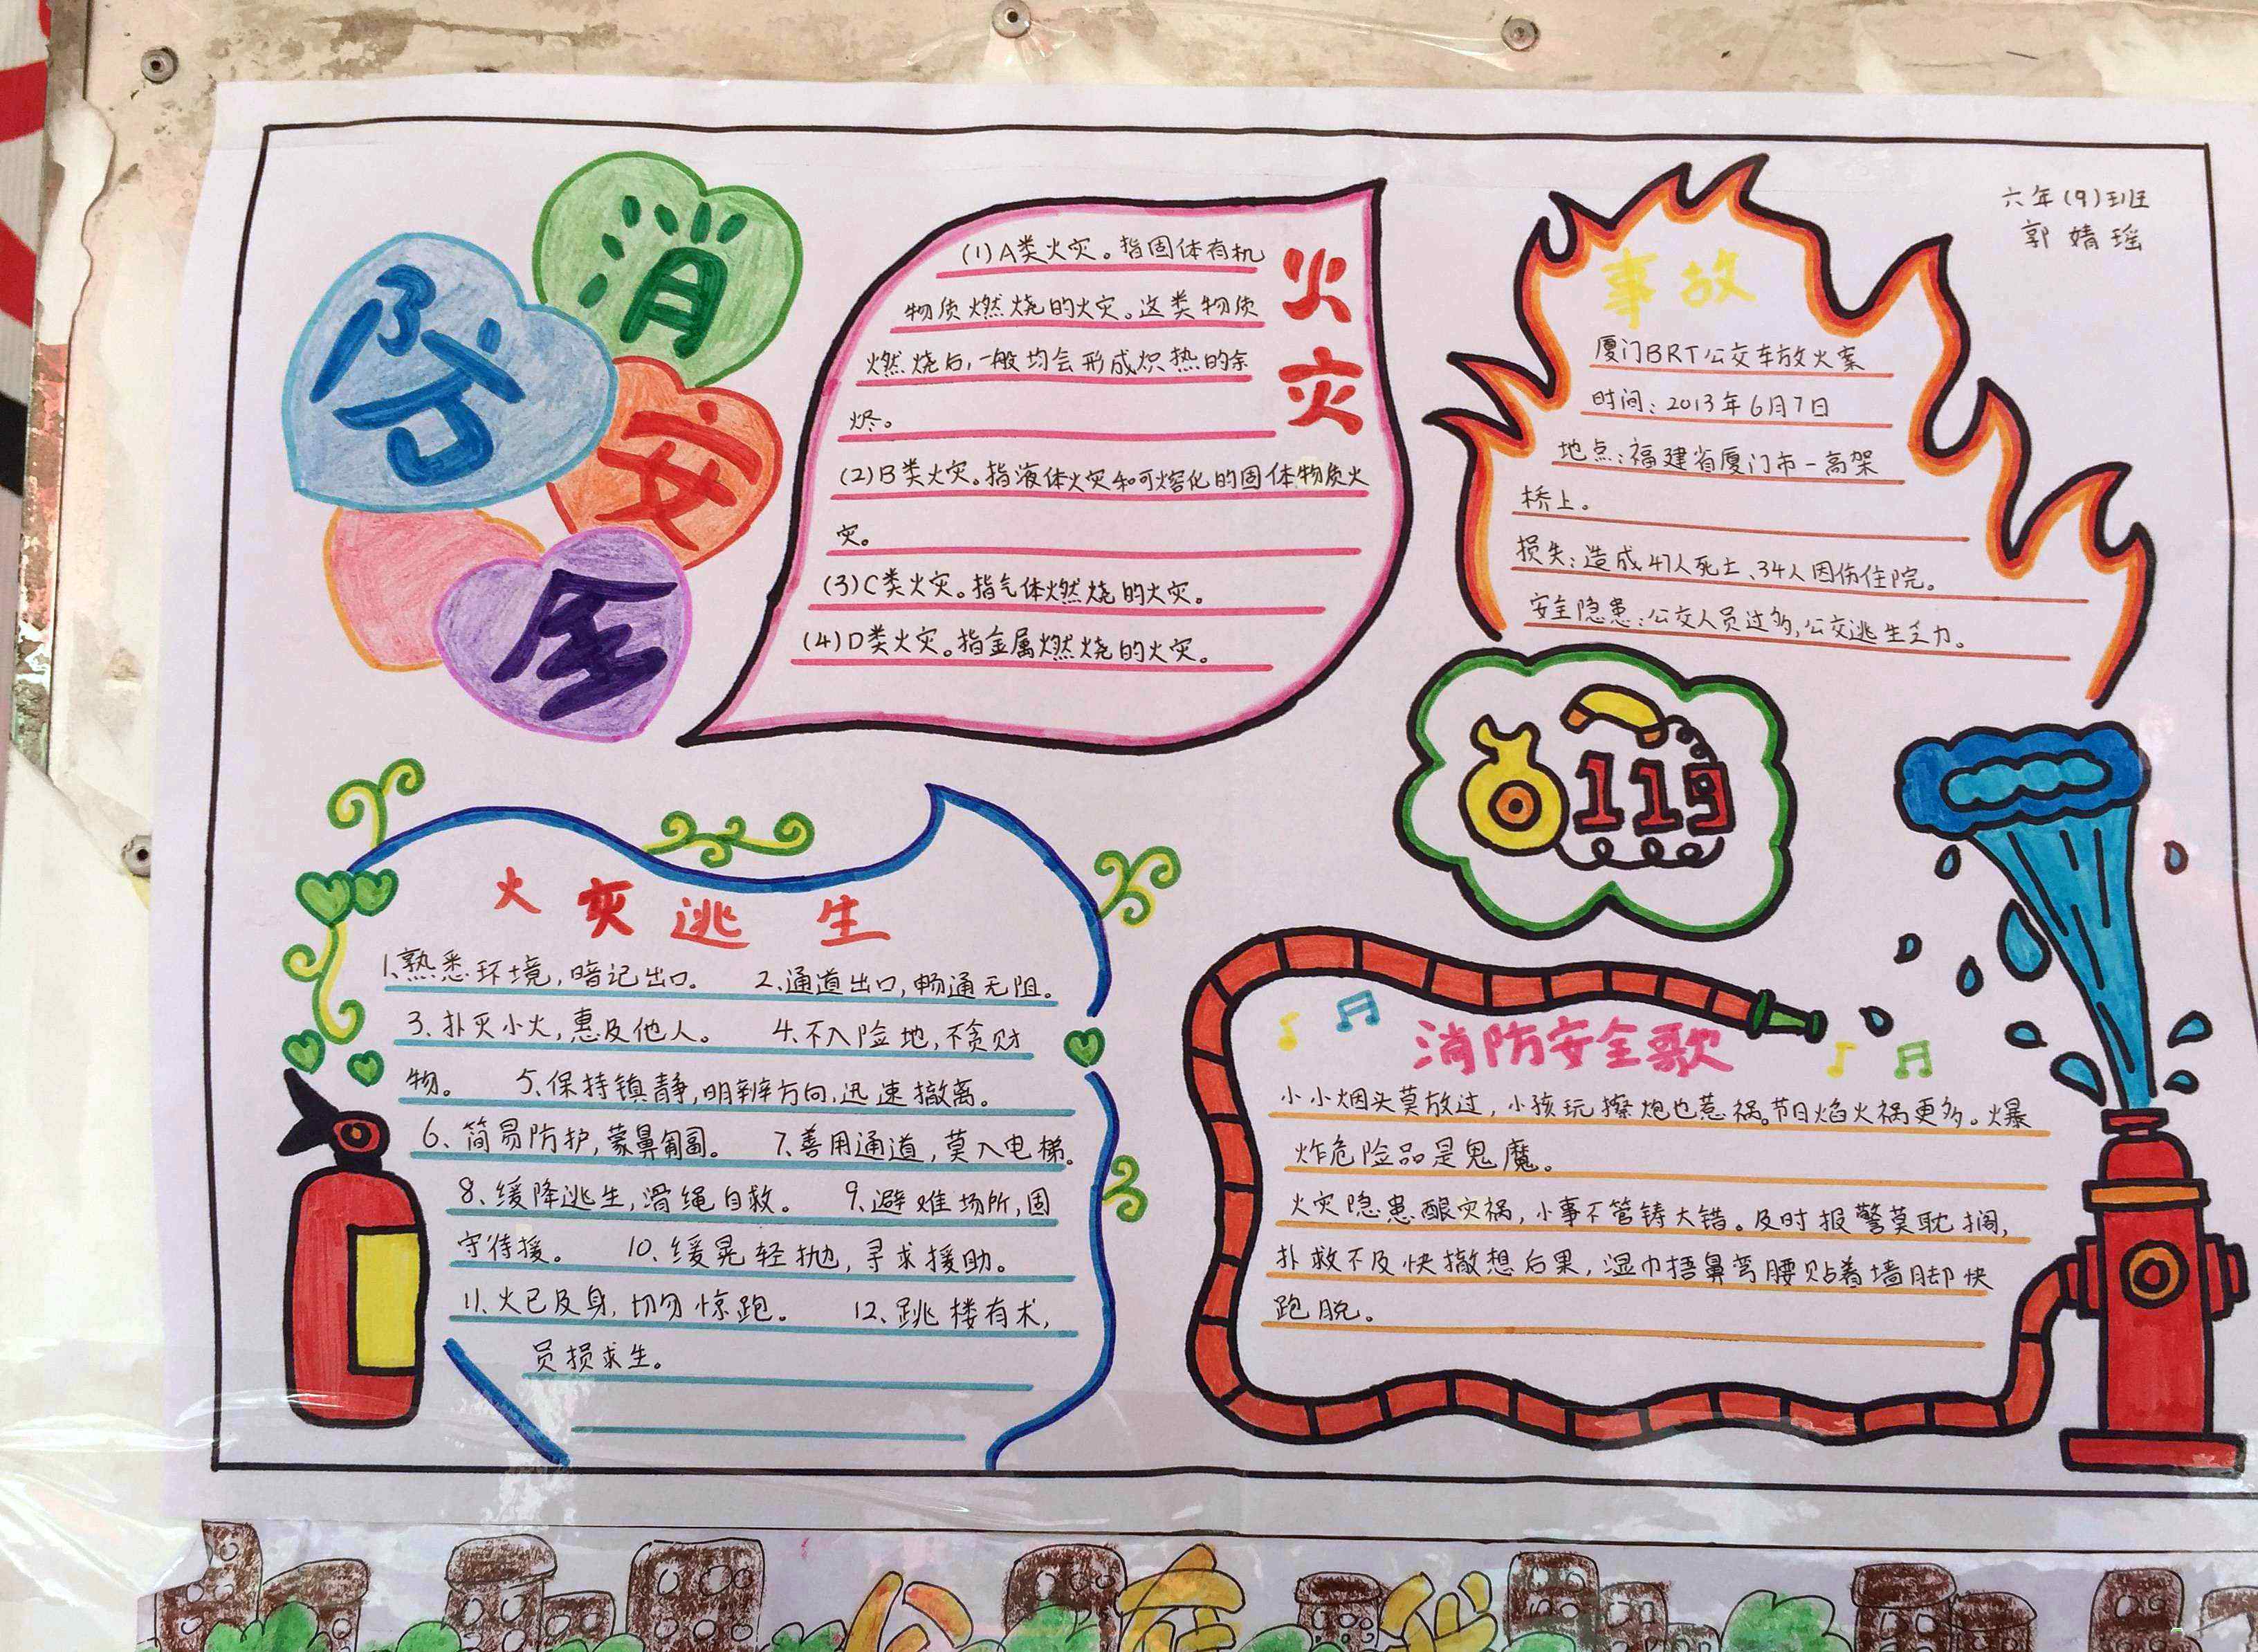 消
防
安
全
火灾
(1)A类火灾。指固体有机
物质燃烧的火灾。这类物质
燃烧后,一般均会形成炽热的余
烬。
(2)B类火灾。指液体火灾和可熔化的固体物质火
灾。
(3)C类火灾。指气体燃烧的火灾。
(4)D类火灾。指金属燃烧的火灾。
六年(9)班
郭婧瑶
事故
厦门BRT公交车放火案
时间:2013年6月7日
地点:福建省厦门市一高架
桥上。
损失:造成47人死亡、34人因伤住院。
安全隐患:公交人员过多,公交逃生乏力。
119
火灾逃生
1、熟悉环境,暗记出口。 2、通道出口,畅通无阻。
3、扑灭小火,惠及他人。 4、不入险地,不贪财
物。 5、保持镇静,明辨方向,迅速撤离。
6、简易防护,蒙鼻匍匐。 7、善用通道,莫入电梯。
8、缓降逃生,滑绳自救。 9、避难场所,固
守待援。 10、缓晃轻抛,寻求援助。
11、火已及身,切勿惊跑。 12、跳楼有术,
员损求生。
消防安全歌
小小烟头莫放过,小孩玩擦炮也惹祸。节日焰火祸更多。爆
炸危险品是鬼魔。
火灾隐患酿灾祸,小事不管铸大错。及时报警莫耽搁,
扑救不及快撤想后果,湿巾捂鼻弯腰贴着墙脚快
跑脱。